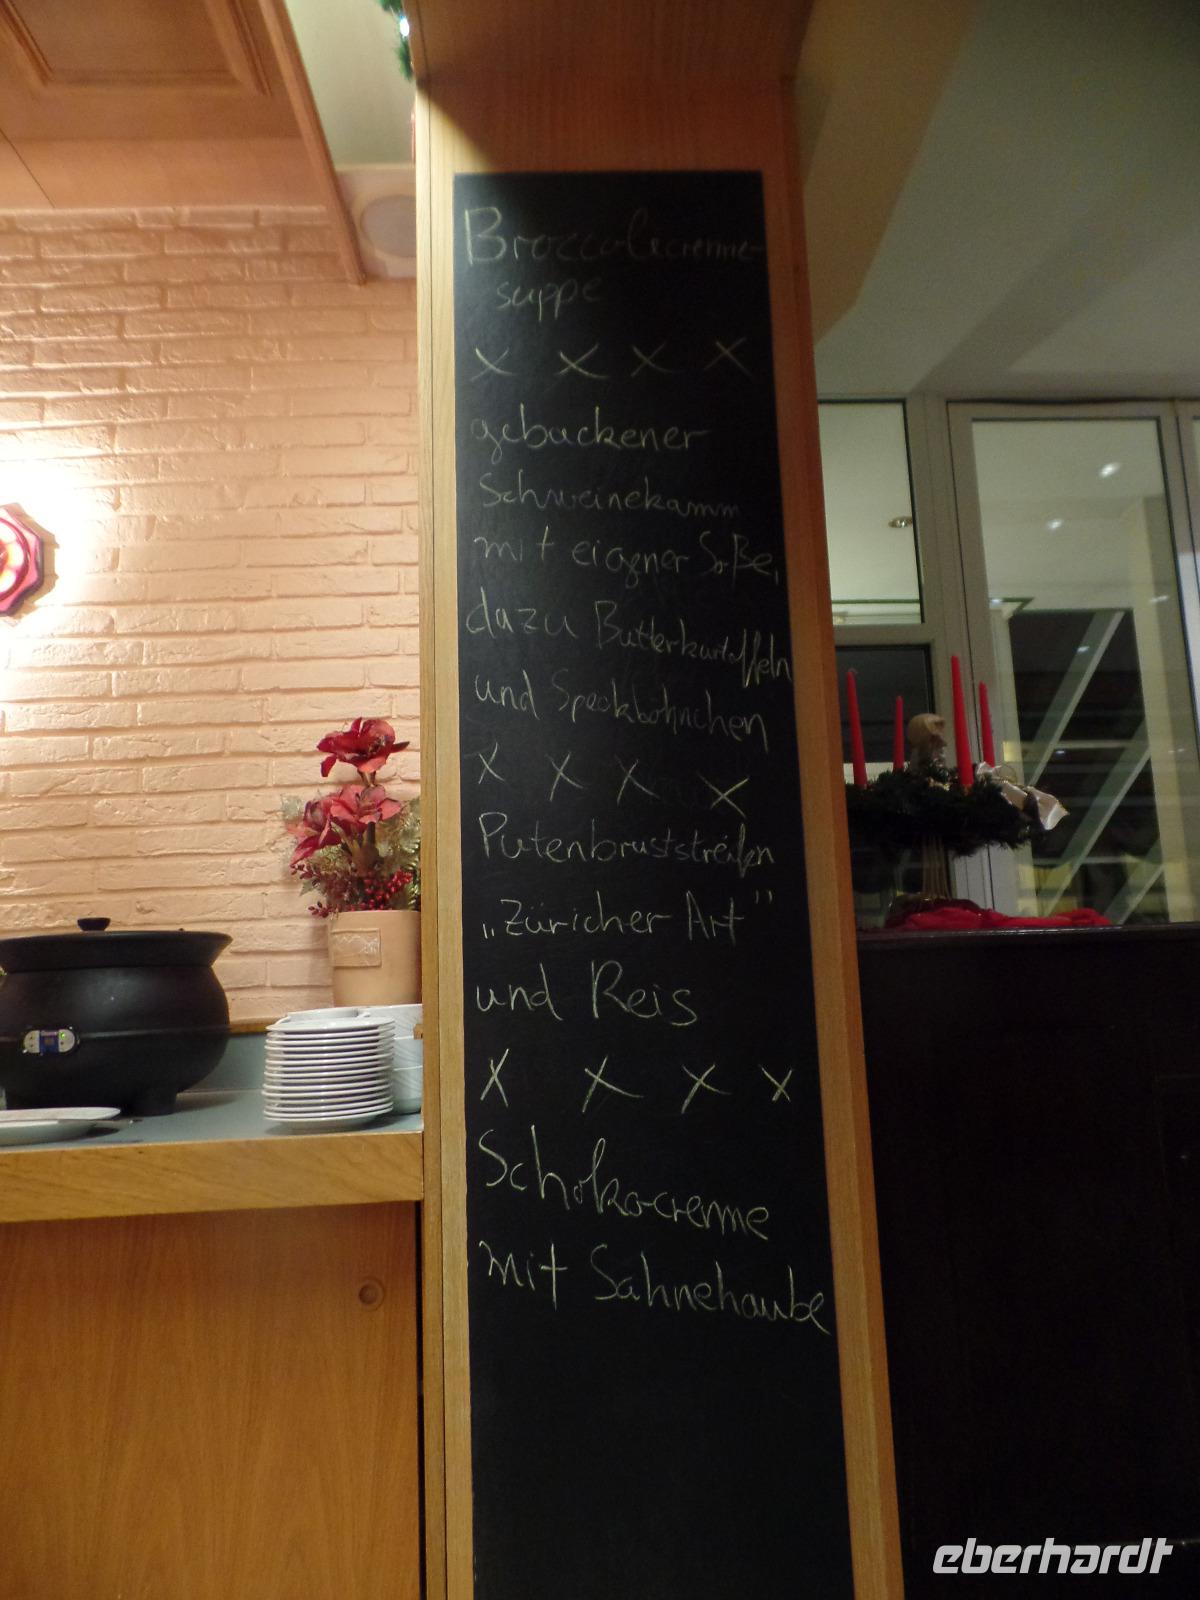 Broccolicreme-
suppe
x x x x
gebackener
Schweinekamm
mit eigner Soße,
dazu Butterkartoffeln
und Speckböhnchen
x x x x
Putenbruststreifen
„Züricher Art"
und Reis
x x x x
Schoko-creme
mit Sahnehaube
eberhardt